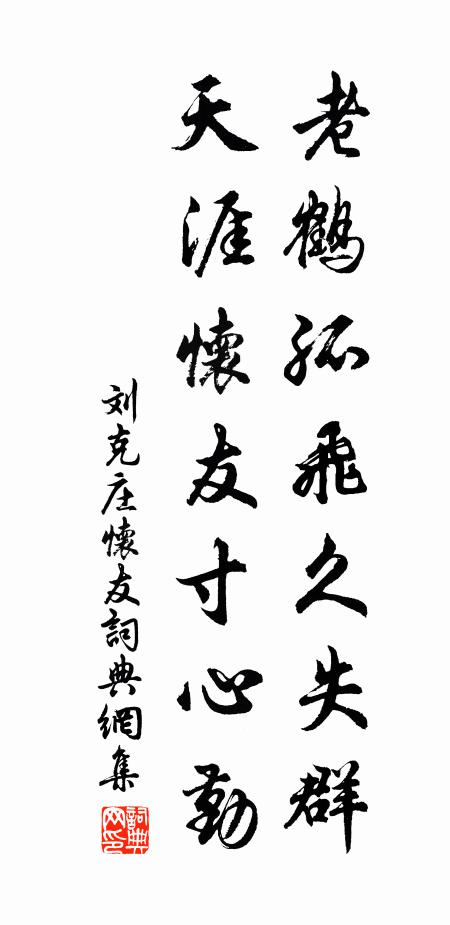 老鹤孤飛久失群
天涯懷友寸心勤
刘克庄懷友詞典網集
詞典
网印